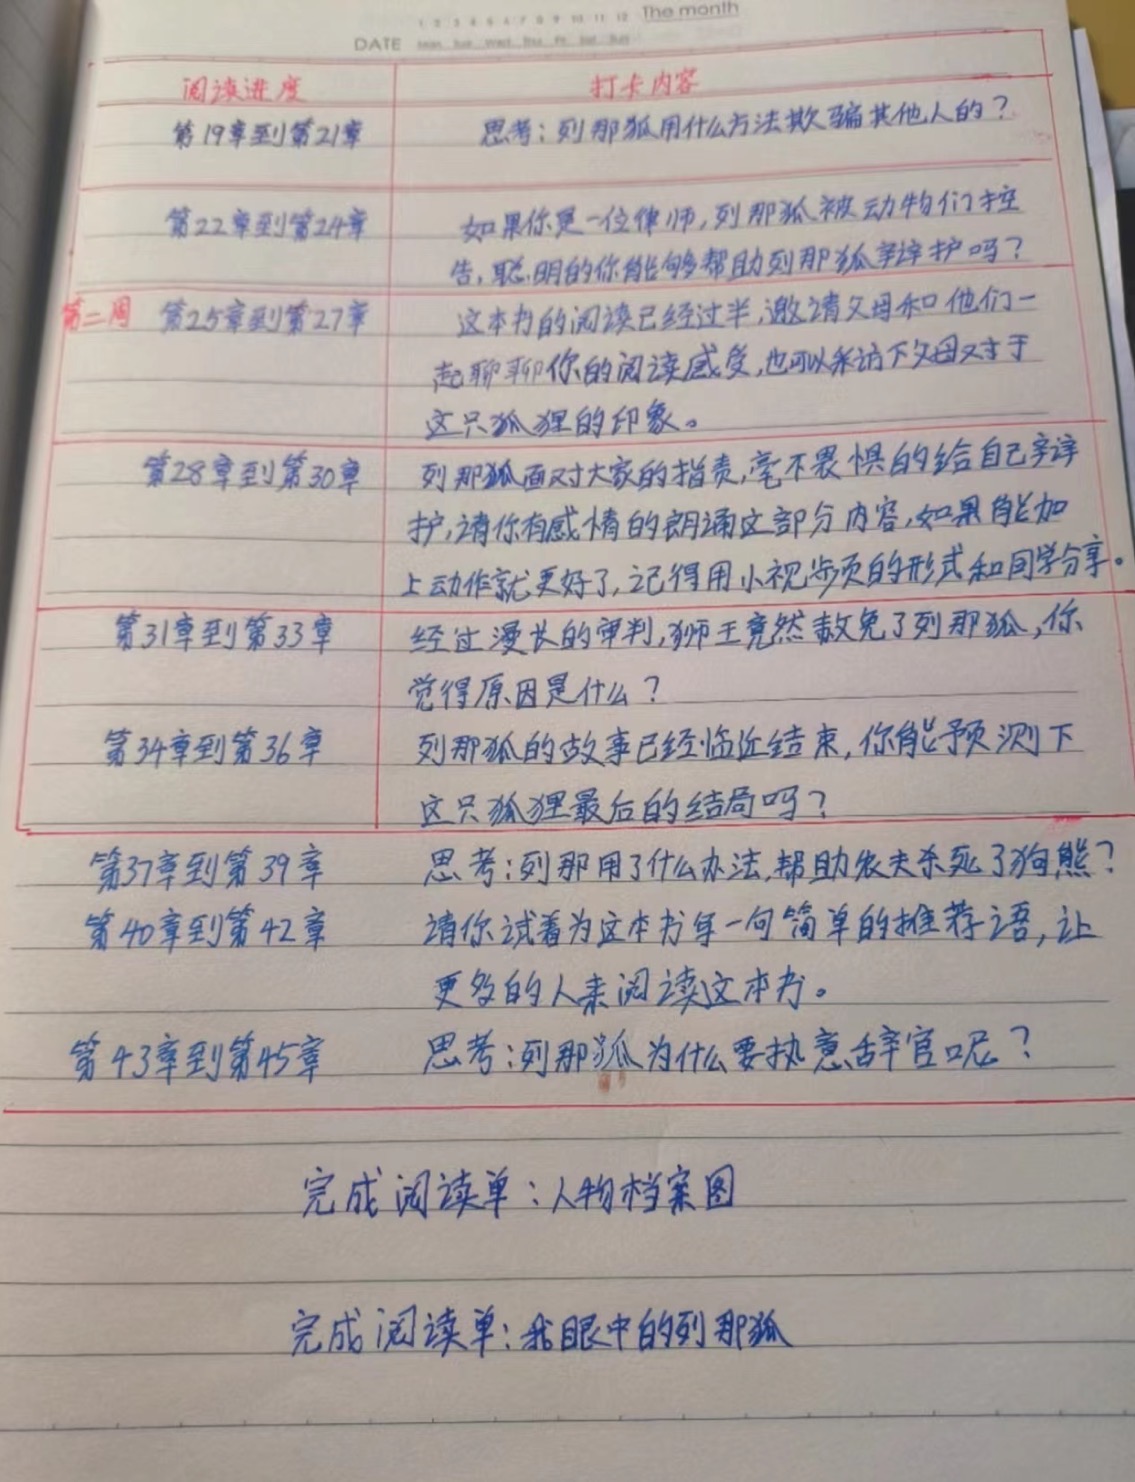 1 2 3 4 5 6 7 8 9 10 11 12 The month
DATE Mon Tue Wed Thu Fri Sat Sun
阅读进度 打卡内容
第19章到第21章 思考:列那狐用什么方法欺骗其他人的?
第22章到第24章 如果你是一位律师,列那狐被动物们控
告,聪明的你能够帮助列那狐辩护吗?
第二周 第25章到第27章 这本书的阅读已经过半,邀请父母和他们一
起聊聊你的阅读感受,也可以采访下父母对于
这只狐狸的印象。
第28章到第30章 列那狐面对大家的指责,毫不畏惧的给自己辩
护,请你有感情的朗诵这部分内容,如果能加
上动作就更好了,记得用小视频的形式和同学分享。
第31章到第33章 经过漫长的审判,狮王竟然赦免了列那狐,你
觉得原因是什么?
第34章到第36章 列那狐的故事已经临近结束,你能预测下
这只狐狸最后的结局吗?
第37章到第39章 思考:列那用了什么办法,帮助农夫杀死了狗熊?
第40章到第42章 请你试着为这本书写一句简单的推荐语,让
更多的人来阅读这本书。
第43章到第45章 思考:列那狐为什么要执意辞官呢?
完成阅读单:人物档案图
完成阅读单:我眼中的列那狐